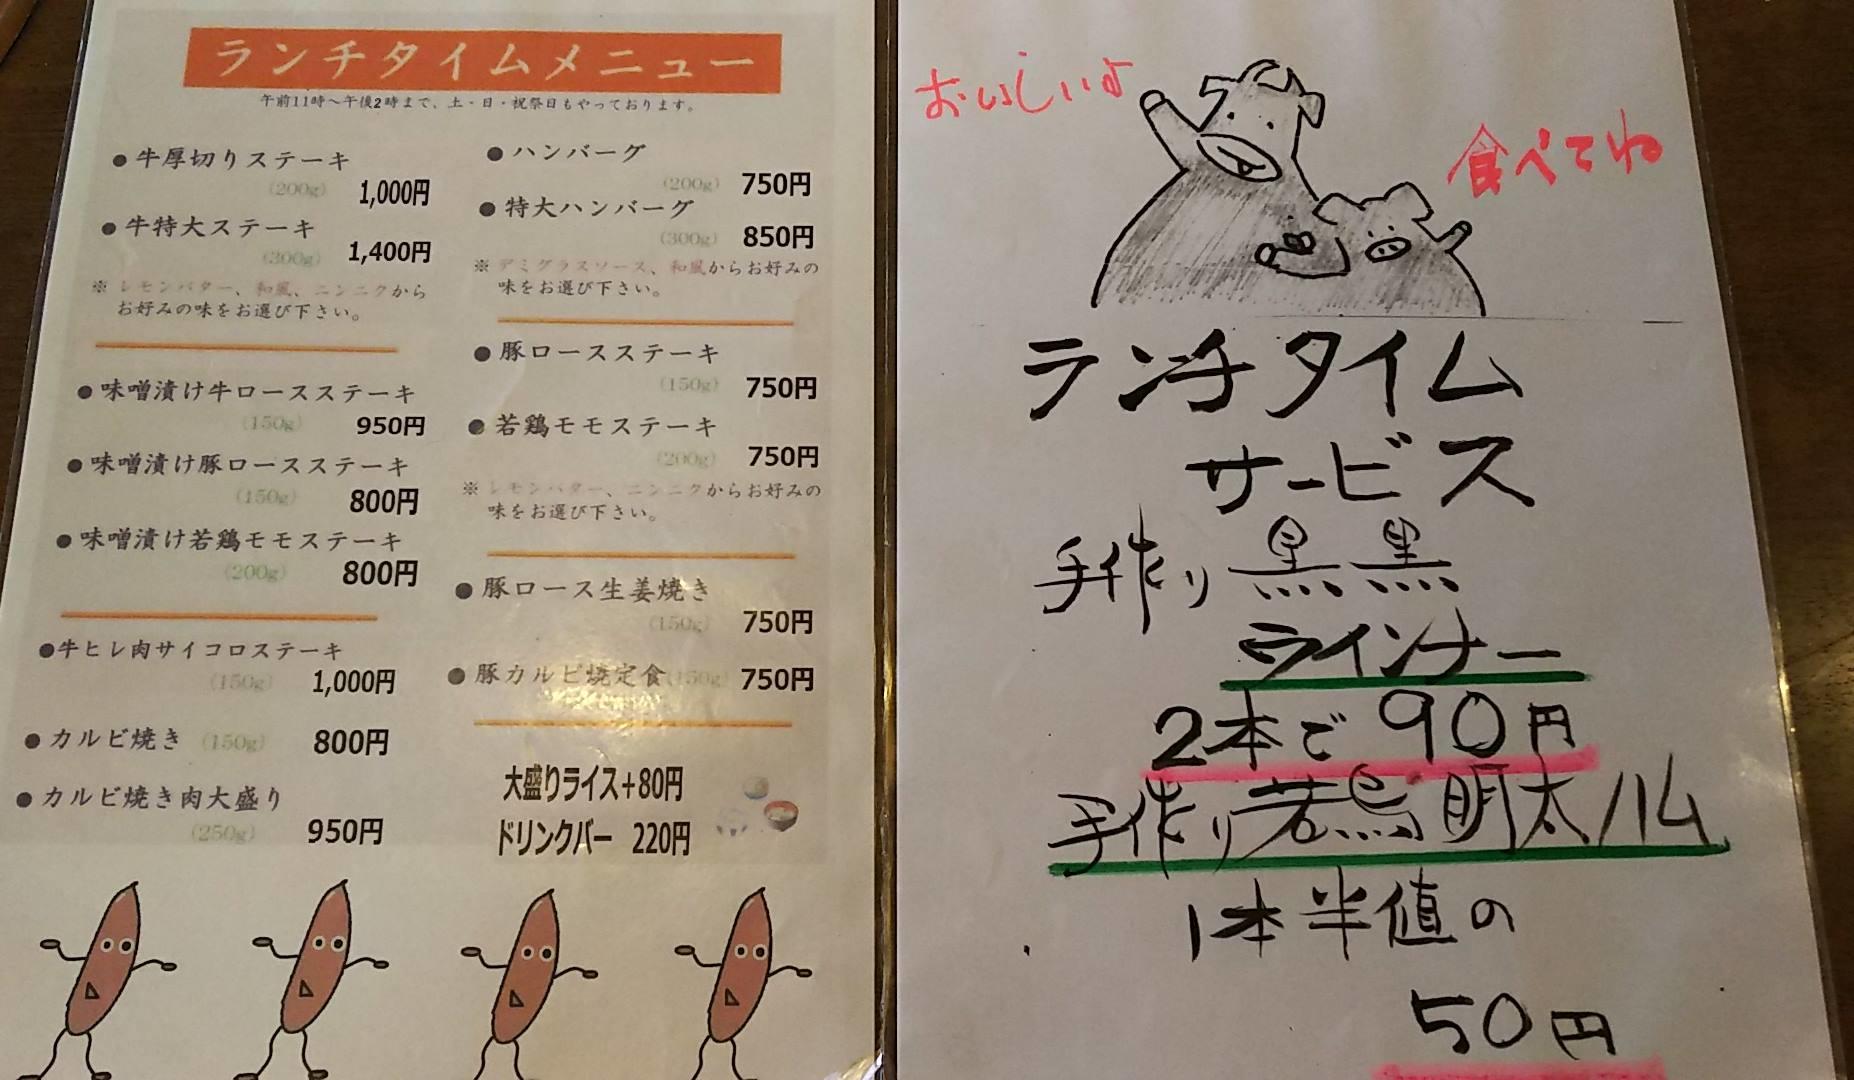 ランチタイムメニュー
午前11時～午後2時まで、土・日・祝祭日もやっております。
●牛厚切りステーキ
(200g) 1,000円
●牛特大ステーキ
(300g) 1,400円
※レモンバター、和風、ニンニクから
お好みの味をお選び下さい。
●味噌漬け牛ロースステーキ
(150g) 950円
●味噌漬け豚ロースステーキ
(150g) 800円
●味噌漬け若鶏モモステーキ
(200g) 800円
●牛ヒレ肉サイコロステーキ
(150g) 1,000円
●カルビ焼き (150g) 800円
●カルビ焼き肉大盛り
(250g) 950円
●ハンバーグ
(200g) 750円
●特大ハンバーグ
(300g) 850円
※デミグラスソース、和風からお好みの
味をお選び下さい。
●豚ロースステーキ
(150g) 750円
●若鶏モモステーキ
(200g) 750円
※レモンバター、ニンニクからお好みの
味をお選び下さい。
●豚ロース生姜焼き
(150g) 750円
●豚カルビ焼定食(150g) 750円
大盛りライス+80円
ドリンクバー 220円
おいしいよ
食べてね
ランチタイム
サービス
手作り黒黒
ラインナー
2本で90円
手作り若鳥明太ハム
1本半値の
50円